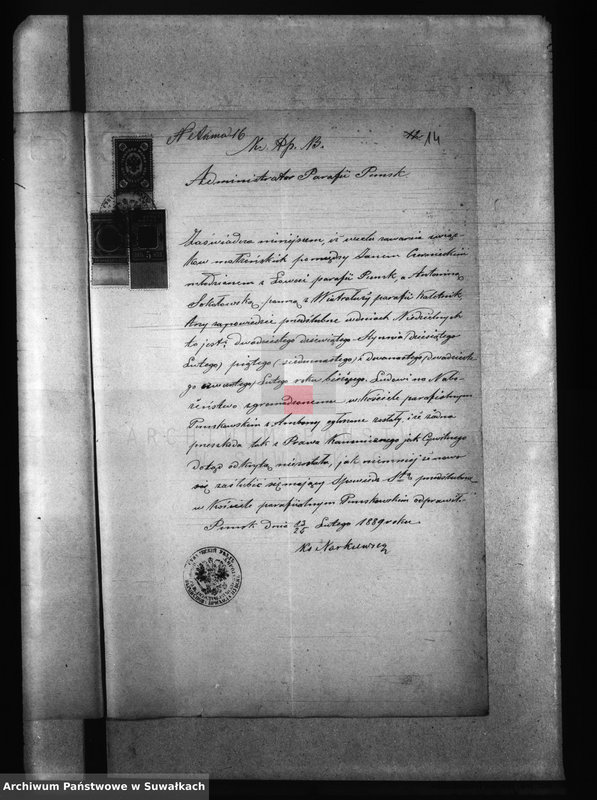 N Aktu 16
14
Nr. Ap. 13.
Administrator Parafii Puńsk
Zaświadcza niniejszem, iż w celu zawarcia związ-
ków małżeńskich pomiędzy Janem Czarnieckim
młodzianem z parafii Puńsk, a Antoniną
Sokołowską panną z Wiatrołuży parafii Kaletnik
trzy zapowiedzie przedślubne w dniach Niedzielnych
to jest: dwudziestego dziewiątego Stycznia /dziesiątego
Lutego/ piątego /siedemnastego/ i dwunastego /dwudzieste-
go czwartego/ Lutego roku bieżącego Ludowi na Nabo-
żeństwo zgromadzonemu w Kościele parafialnym
Puńskowskim z Ambony ogłoszone zostały, iż żadna
przeszkoda tak z Prawa Kanonicznego jak Cywilnego
dotąd odkrytą nie została, jak niemniej iż nowo
się zaślubić się mający Spowiedź Stą przedślubną
w Kościele parafialnym Puńskowskim odprawili.
Puńsk dnia 13/25 Lutego 1889 roku.
Ks Narkiewicz
Archiwum Państwowe w Suwałkach